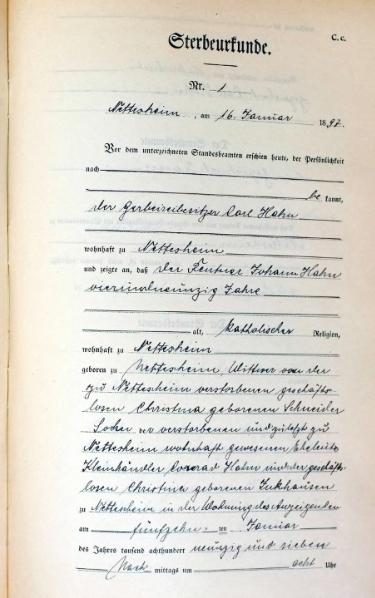 C. c.
Sterbeurkunde.
Nr. 1
Nettesheim, am 16. Januar 1897.
Vor dem unterzeichneten Standesbeamten erschien heute, der Persönlichkeit
nach
be kannt,
der Gerbereibesitzer Carl Hahn
wohnhaft zu Nettesheim
und zeigte an, daß der Rentner Johann Hahn
vierundneunzig Jahre
alt, katholischer Religion,
wohnhaft zu Nettesheim
geboren zu Nettesheim, Wittwer von der
zu Nettesheim verstorbenen geschäfts-
losen Christina geborenen Schneider
Sohn der verstorbenen und zuletzt zu
Nettesheim wohnhaft gewesenen Eheleute
Kleinhändler Conrad Hahn und der geschäfts-
losen Christine geborenen
zu Nettesheim in der Wohnung des Anzeigenden
am fünfzehn ten Januar
des Jahres tausend achthundert neunzig und sieben
Nach mittags um acht Uhr